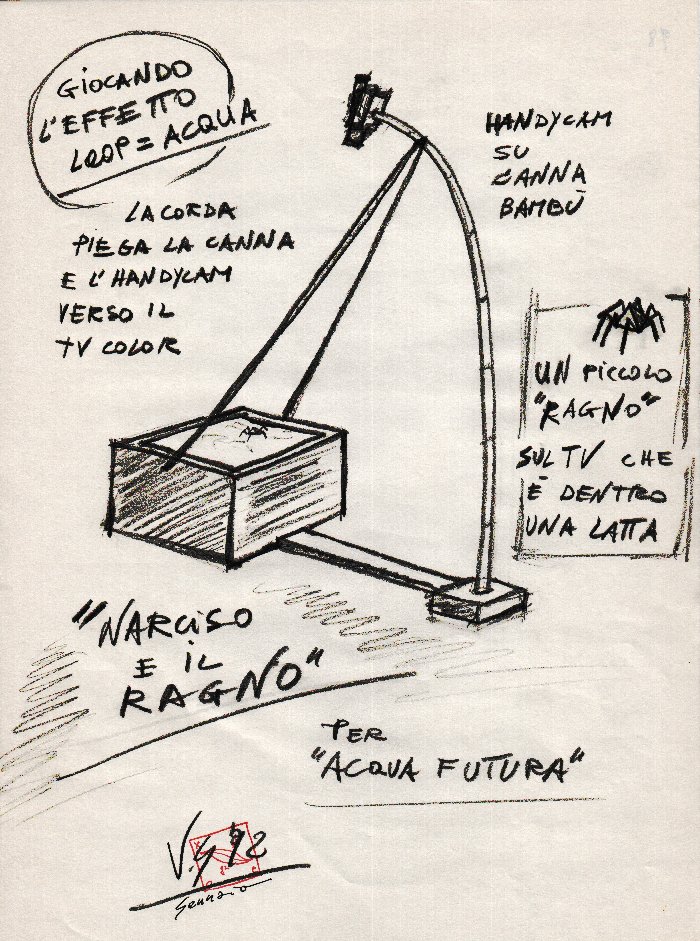 GIOCANDO
L'EFFETTO
LOOP = ACQUA
LA CORDA
PIEGA LA CANNA
E L'HANDYCAM
VERSO IL
TV COLOR
HANDYCAM
SU
CANNA
BAMBÙ
UN PICCOLO
"RAGNO"
SUL TV CHE
È DENTRO
UNA LATTA
"NARCISO
E IL
RAGNO"
PER
"ACQUA FUTURA"
Gennaio